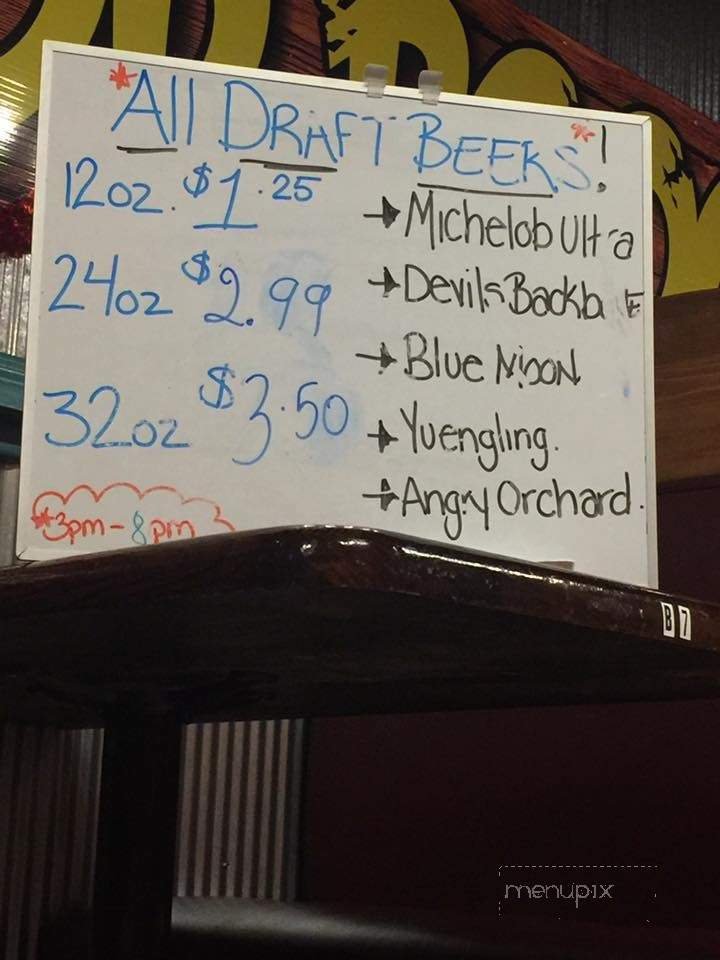 *All DRAFT BEERS*!
12oz. $1.25
24oz $2.99
32oz $3.50
*3pm - 8pm
→Michelob Ultra
→Devils
→Blue Moon
→Yuengling.
→Angry Orchard.
B7
menupix